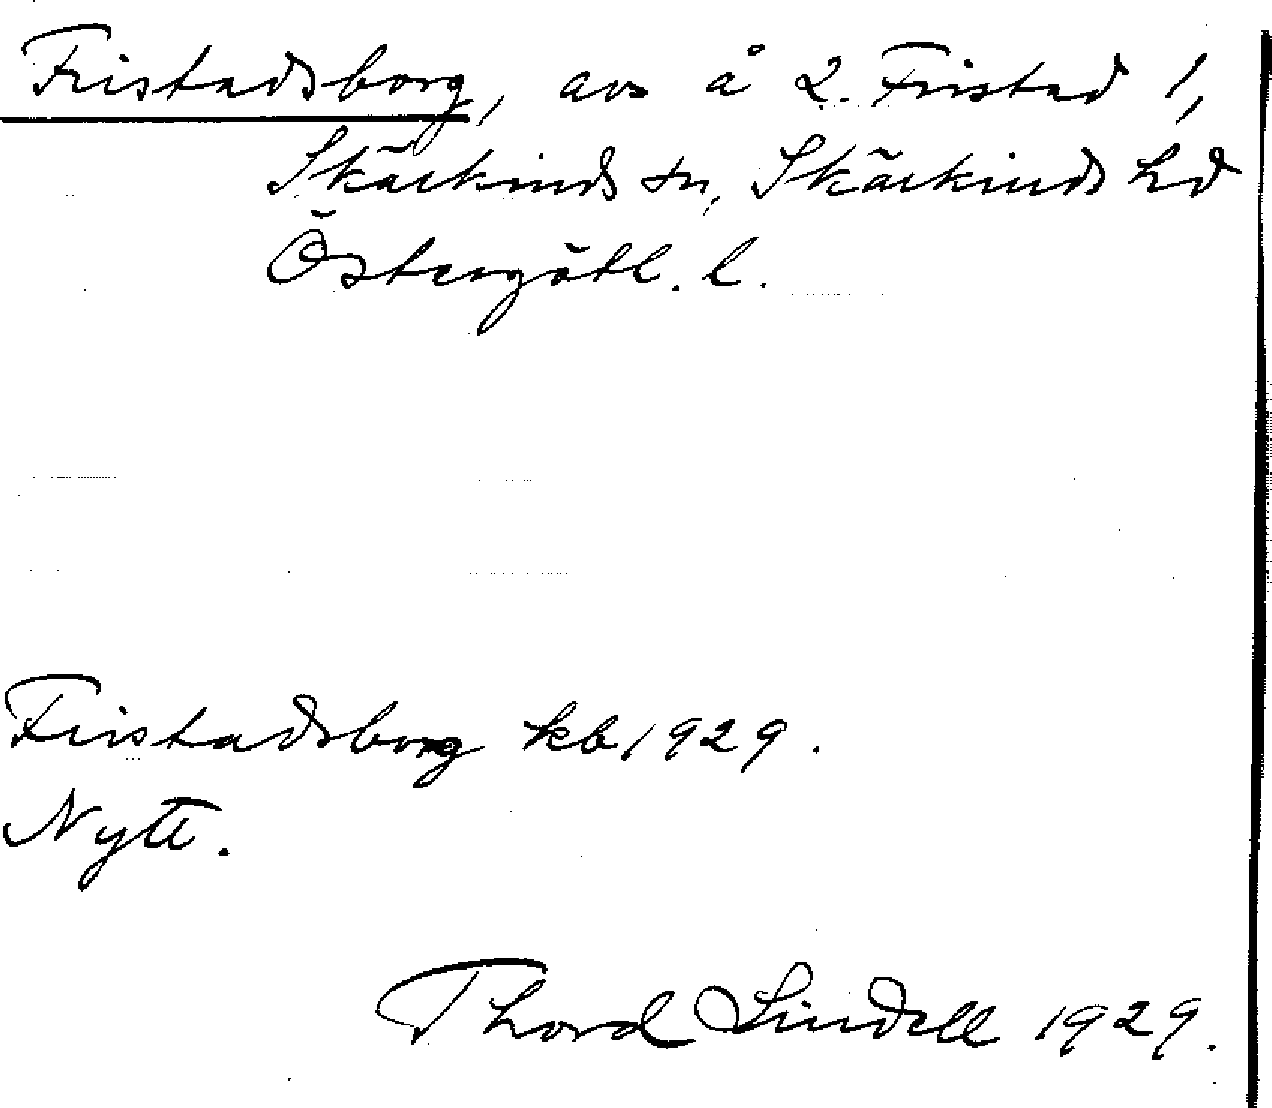 Fristadsborg, avs å 2 Fristad 1,
Skärkinds sn, Skärkinds hd
Östergötl. l.
Fristadsborg kb 1929.
Nytt.
Thord Lindell 1929.